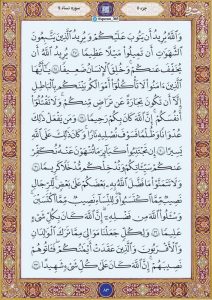 سوره نساء ۴
جزء ۵
وَاللَّهُ يُرِيدُ أَن يَتُوبَ عَلَيْكُمْ وَيُرِيدُ الَّذِينَ يَتَّبِعُونَ
الشَّهَوَاتِ أَن تَمِيلُوا مَيْلًا عَظِيمًا ۝٢٧ يُرِيدُ اللَّهُ أَن
يُخَفِّفَ عَنكُمْ وَخُلِقَ الْإِنسَانُ ضَعِيفًا ۝٢٨ يَٰأَيُّهَا
الَّذِينَ ءَامَنُوا لَا تَأْكُلُوا أَمْوَٰلَكُم بَيْنَكُم بِالْبَٰطِلِ
إِلَّا أَن تَكُونَ تِجَٰرَةً عَن تَرَاضٍ مِّنكُمْ وَلَا تَقْتُلُوا
أَنفُسَكُمْ إِنَّ اللَّهَ كَانَ بِكُمْ رَحِيمًا ۝٢٩ وَمَن يَفْعَلْ ذَٰلِكَ
عُدْوَٰنًا وَظُلْمًا فَسَوْفَ نُصْلِيهِ نَارًا وَكَانَ ذَٰلِكَ عَلَى اللَّهِ
يَسِيرًا ۝٣٠ إِن تَجْتَنِبُوا كَبَائِرَ مَا تُنْهَوْنَ عَنْهُ نُكَفِّرْ
عَنكُمْ سَيِّئَاتِكُمْ وَنُدْخِلْكُم مُّدْخَلًا كَرِيمًا ۝٣١
وَلَا تَتَمَنَّوْا مَا فَضَّلَ اللَّهُ بِهِ بَعْضَكُمْ عَلَىٰ بَعْضٍ لِّلرِّجَالِ
نَصِيبٌ مِّمَّا اكْتَسَبُوا وَلِلنِّسَاءِ نَصِيبٌ مِّمَّا اكْتَسَبْنَ
وَسْـَٔلُوا اللَّهَ مِن فَضْلِهِ إِنَّ اللَّهَ كَانَ بِكُلِّ شَيْءٍ
عَلِيمًا ۝٣٢ وَلِكُلٍّ جَعَلْنَا مَوَٰلِيَ مِمَّا تَرَكَ الْوَٰلِدَانِ
وَالْأَقْرَبُونَ وَالَّذِينَ عَقَدَتْ أَيْمَٰنُكُمْ فَـَٔاتُوهُمْ
نَصِيبَهُمْ إِنَّ اللَّهَ كَانَ عَلَىٰ كُلِّ شَيْءٍ شَهِيدًا ۝٣٣
۸۳